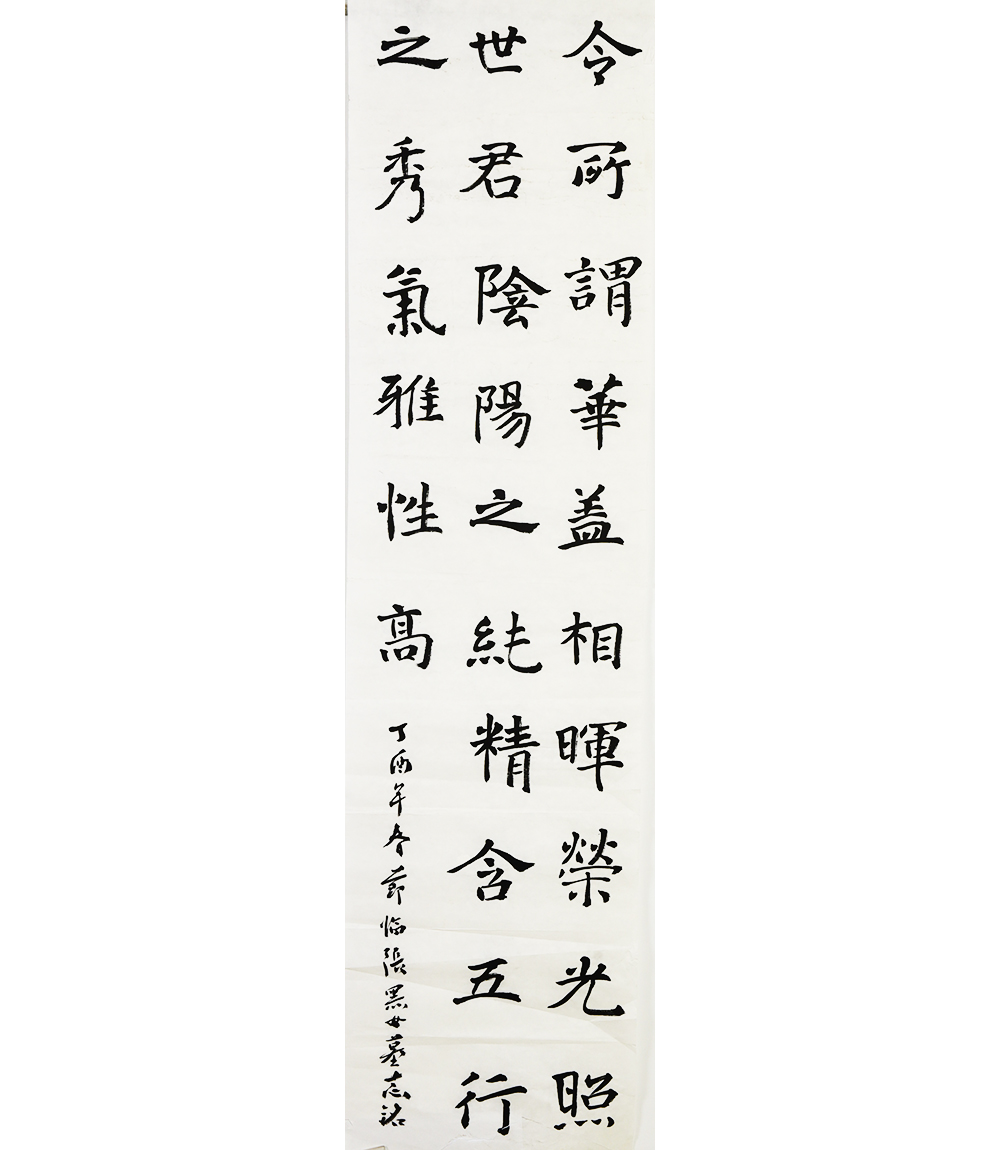 令所謂華盖相暉榮光照
世君陰陽之純精含五行
之秀氣雅性高
丁酉年春節臨張黑女墓志銘